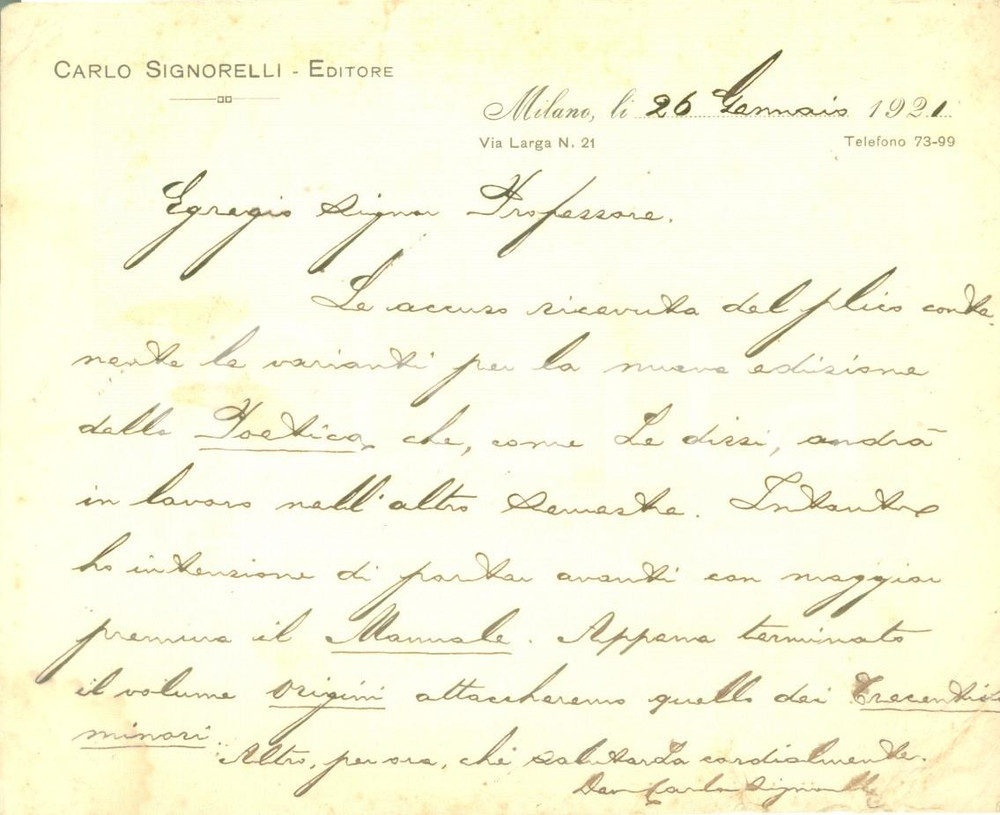 CARLO SIGNORELLI - EDITORE
Milano, li 26 Gennaio 1921.
Via Larga N. 21 Telefono 73-99
Egregio Signor Professore.
Le accuso ricevuta del plico conte-
nente le varianti per la nuova edizione
della Poetica, che, come Le dissi, andrà
in lavoro nell'altro semestre. Intanto
ho intenzione di portar avanti con maggior
premura il Manuale. Appena terminato
il volume Origini attaccheremo quello dei Trecentisti
minori.
Altro, per ora, che salutarLa cordialmente.
Carlo Signorelli